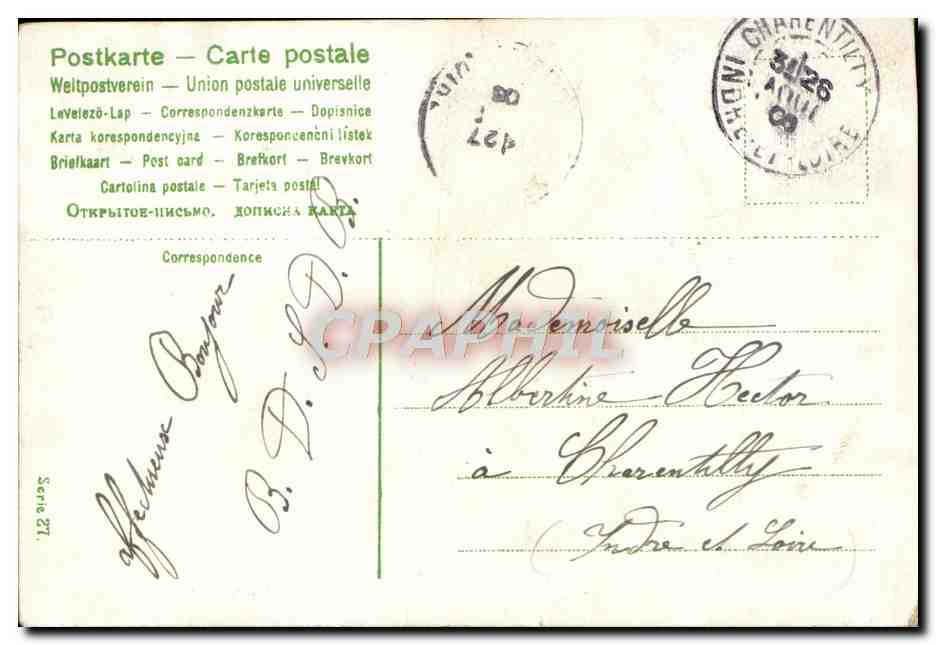 Postkarte — Carte postale
Weltpostverein — Union postale universelle
Levelező-Lap — Correspondenzkarte — Dopisnice
Karta korespondencyjna — Korespondenční lístek
Briefkaart — Post card — Brefkort — Brevkort
Cartolina postale — Tarjeta postal
Открытое-письмо. дописна карта
427
08
CHARENTILLY
26
INDRE ET LOIRE
Correspondence
Affectueux Bonjour
B. D. S. D. B.
Mademoiselle
Albertine Hector.
à Charentilly
(Indre et Loire)
Serie 27.
CPAPHIL